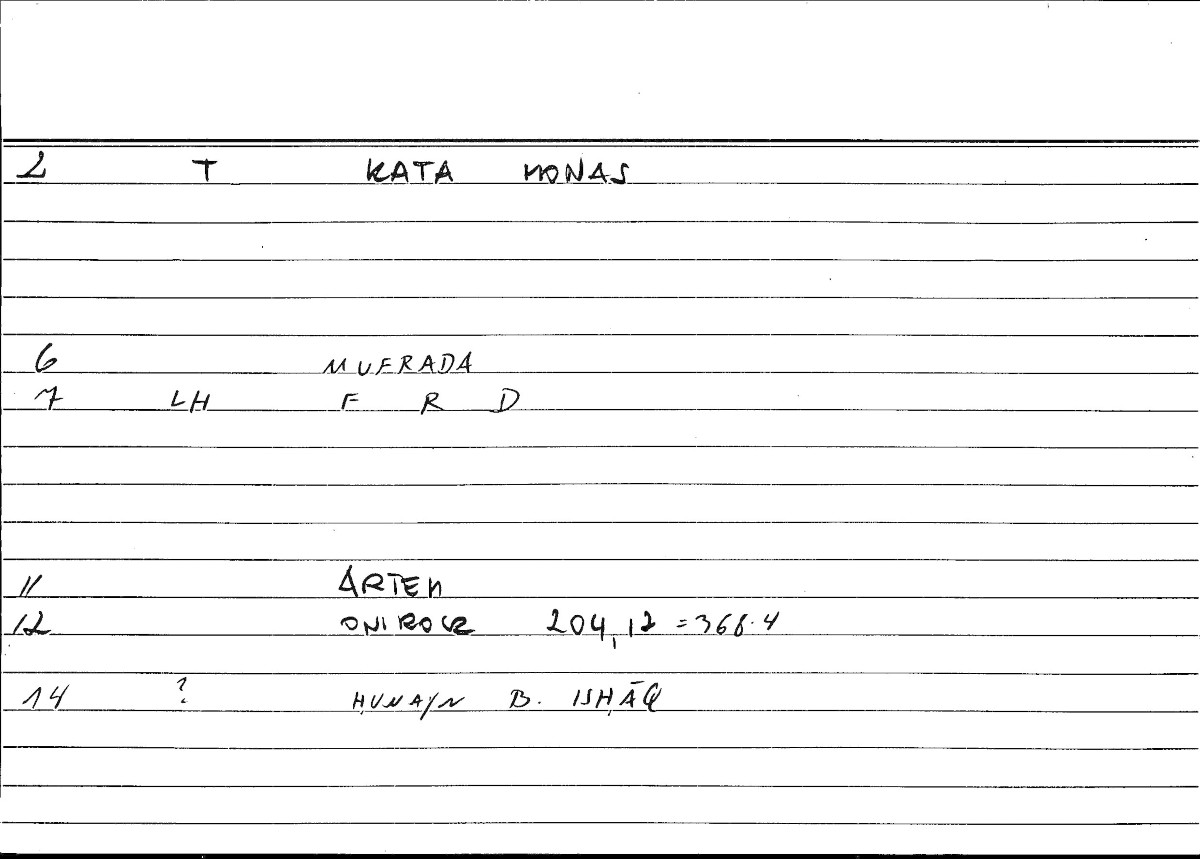 2 T KATA MONAS
6 MUFRADA
7 LH F R D
11 ARTEM
12 ONIROCR 204,12 = 366.4
14 ? ḤUNAYN B. ISḤĀQ